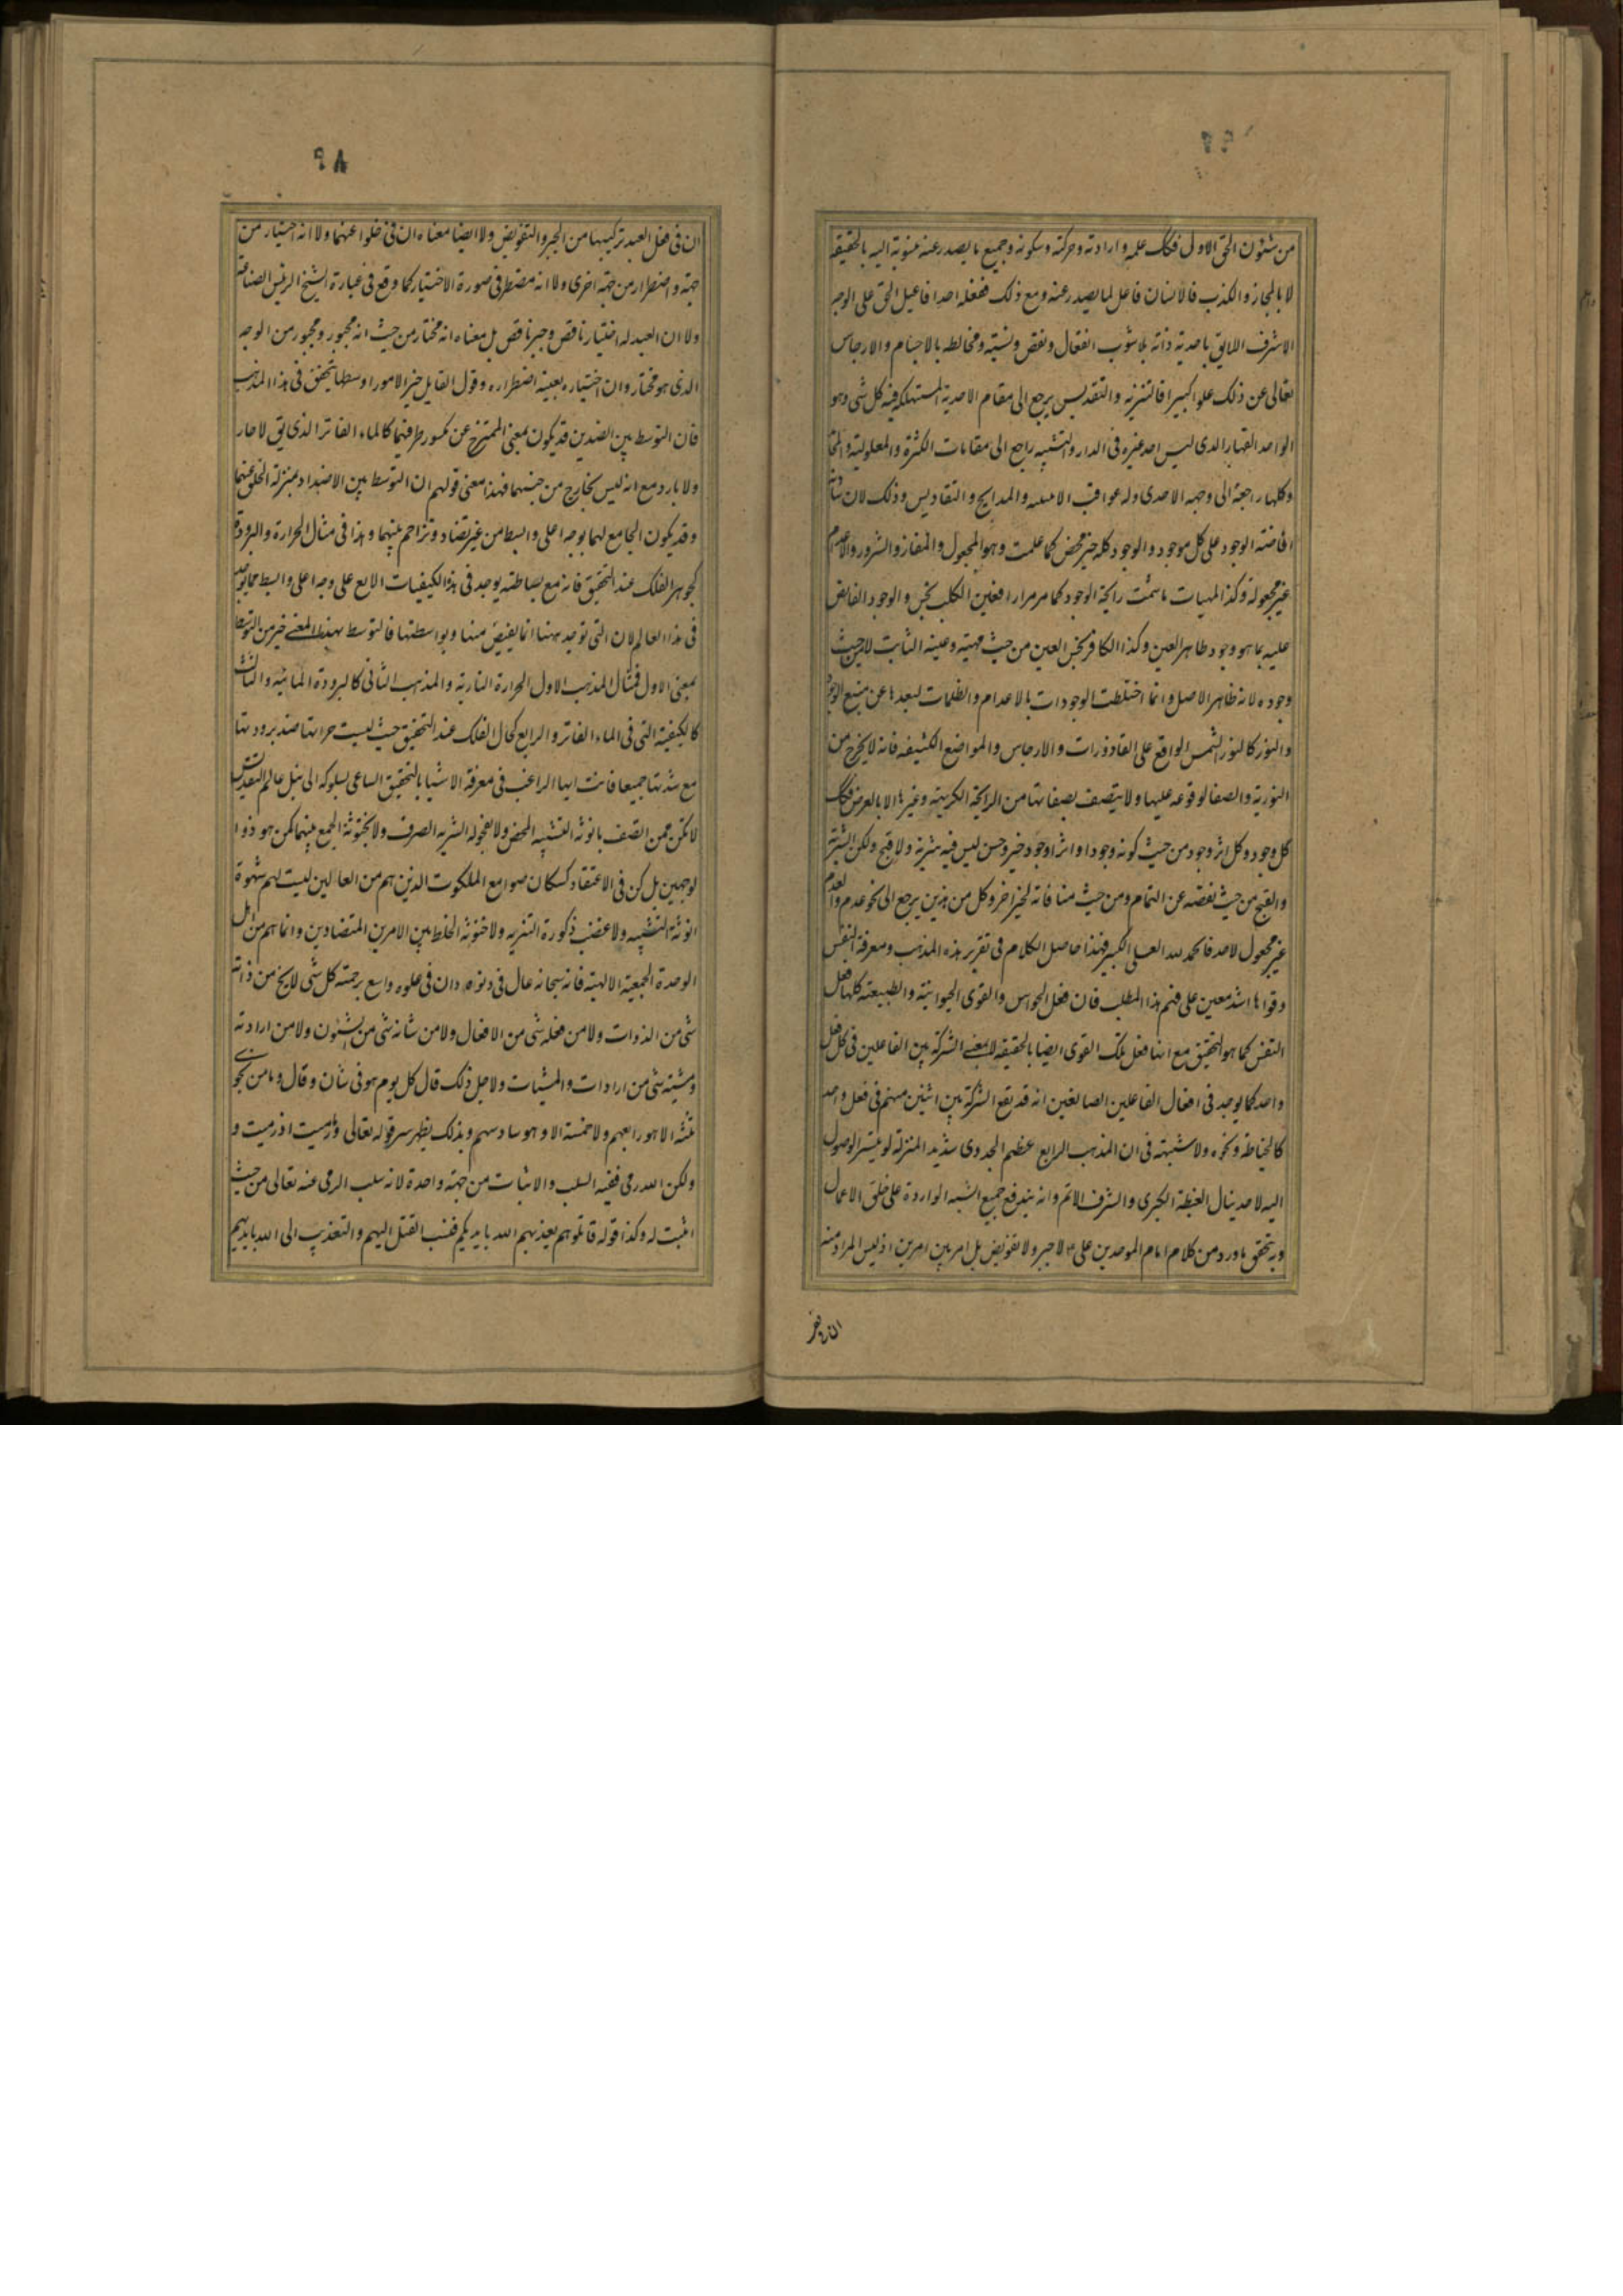 من شئون الحق الاول فكك علمه وارادته وحركته وسكونه وجميع ما يصدر عنه منسوبة اليه بالحقيقة
لا بالمجاز والكذب فالانسان فاعل لما يصدر عنه ومع ذلك ففعله احد افاعيل الحق على الوجه
الاشرف اللايق باحدية ذاته بلا شوب انفعال ونقص وتشبيه ومخالطه بالاجسام والارجاس
تعالى عن ذلك علوا كبيرا فالتنزيه والتقديس يرجع الى مقام الاحدية المستهلكة فيه كل شى وهو
الواحد القهار الذى ليس احد غيره فى الدار والتشبيه راجع الى مقامات الكثرة والمعلولية والمحا
وكلها راجعة الى وجهه الاحدى وله عواقب الاثنيه والمدايح والتقاديس وذلك لان شانه
افاضته الوجود على كل موجود والوجود كله خير محض كما علمت وهو المجعول والمفاز والشرور والاعدام
غير مجعولة وكذا المهيات ما شمت رائحة الوجود كما مر مرارا فعين الكلب نجس والوجود الفايض
عليه بما هو وجود طاهر العين وكذا الكافر نجس العين من حيث مهيته وعينه الثابت لا من حيث
وجوده لانه طاهر الاصل وانما اختلطت الوجودات بالاعدام والظلمات لبعدها عن منبع الوجود
والنور كالنور الشمس الواقع على القاذورات والارجاس والمواضع الكثيفه فانه لا يخرج من
النورية والصفا لوقوعه عليها ولا يتصف بصفاتها من الرايحة الكريهة وغيرها الا بالعرض فكك
كل وجود وكل اثر وجود من حيث كونه وجودا واثرا وجود خير وحسن ليس فيه شرية ولا قبح ولكن الشرية
والقبح من حيث نقصه عن التمام ومن حيث منافاته لخير اخر وكل من هذين يرجع الى نحو عدم والعدم
غير مجعول لاحد فالحمد لله العلى الكبير فهذا حاصل الكلام فى تقرير هذه المذهب ومعرفة النفس
وقواها اشد معين على فهم هذا المطلب فان فعل الحواس والقوى الحيوانية والطبيعته كلها فعل
النفس كما هو التحقيق مع انها فعل تلك القوى ايضا بالحقيقه لا بمعنى الشركة بين الفاعلين فى كل فعل
واحد كما يوجد فى افعال الفاعلين الصانعين انه قد يقع الشركة بين اثنين منهم فى فعل واحد
كالخياطة ونحوه ولا شبهته فى ان المذهب الرابع عظيم الجدوى شديد المنزلة لو تيسر الوصول
اليه لاحد ينال الغبطة الكبرى والشرف الاتم وانه يندفع جميع الشبه الواردة على خلق الاعمال
وبه يتحقق ما ورد من كلام امام الموحدين على ع لا جبر ولا تفويض بل امر بين امرين اذ ليس المراد منه
ان فى فعل
ان فى فعل العبد تركيبها من الجبر والتفويض ولا ايضا معناه ان فى خلوا عنهما ولا انه اختيار من
جهة واضطرار من جهة اخرى ولا انه مضطر فى صورة الاختيار كما وقع فى عبارة الشيخ الرئيس الصناعة
ولا ان العبد له اختيار ناقص وجبر ناقص بل معناه انه مختار من حيث انه مجبور ومجبور من الوجه
الذى هو مختار وان اختياره بعينه اضطراره وقول القايل خير الامور اوسطها يتحقق فى هذا المذهب
فان التوسط بين الضدين قد يكون بمعنى الممتزج عن كسور طرفيهما كالماء الفاتر الذى يق لا حار
ولا بارد مع انه ليس بخارج من جنسهما فهذا معنى قولهم ان التوسط بين الاضداد بمنزلة الخلو عنهما
وقد يكون الجامع لهما بوجه اعلى وابسط من غير تضاد وتزاحم بينهما وهذا فى مثال الحرارة والبرودة
كجوهر الفلك عند التحقيق فانه مع بساطته يوجد فى هذه الكيفيات الاربع على وجه اعلى وابسط مما يوجد
فى هذا العالم لان التى توجد ههنا انما يفيض منها وبواسطتها فالتوسط بهذا المعنى خير من التوسط
بمعنى الاول فمثال المذهب الاول الحرارة النارية والمذهب الثانى كالبرودة المائيه والثالث
كالكيفية التى فى الماء الفاتر والرابع كحال الفلك عند التحقيق حيث ليست حرارتها ضد برودتها
مع شدتها جميعا فانت ايها الراغب فى معرفة الاشيا بالتحقيق الساعى بسلوكه الى نيل عالم التقديس
لا تكن ممن اتصف بانوثه التشبيه المحض ولا بفحوله التنزيه الصرف ولا بخنوثة الجمع بينهما كمن هو ذوا
لوجهين بل كن فى الاعتقاد كسكان صوامع الملكوت الذين هم من العالين ليست لهم شهوة
انوثه التشبيه ولا غضب ذكورة التنزيه ولا خنوثه الخلط بين الامرين المتضادين وانما هم من اهل
الوحدة الجمعية الالهية فانه سبحانه عال فى دنوه دان فى علوه واسع برحمته كل شى لا يخ من ذاته
شى من الذوات ولا من فعله شى من الافعال ولا من شانه شى من الشئون ولا من ارادته
ومشيته شى من ارادات والمشيات ولاجل ذلك قال كل يوم هو فى شان وقال وما من نجوى
ثلثه الا هو رابعهم ولا خمسة الا وهو سادسهم وبذلك يظهر سر قوله تعالى وما رميت اذ رميت و
ولكن الله رمى ففيه السلب والاثبات من جهة واحدة لانه سلب الرمى عنه تعالى من حيث
اثبت له وكذا قوله قاتلوهم يعذبهم الله بايديكم فنسب القتل اليهم والتعذيب الى الله بايديهم